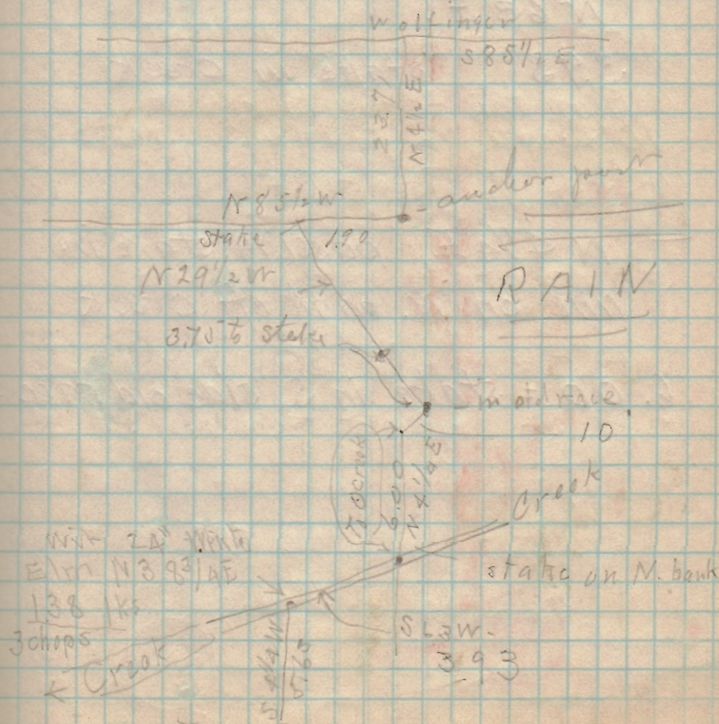 Wolfinger
S 85½ E
22.71
N 4½ E
anchor point
N 85½ W
stake 1.90
N 29½ W
RAIN
3.75 to stake
in old race
10
To Creek
6.00
N 4¼ E
Creek
stake on N. bank
Wit. 24" White
Elm N 38¾ E
138 lks
3 chops
Creek
S 4¼ W
5.65
W.
393